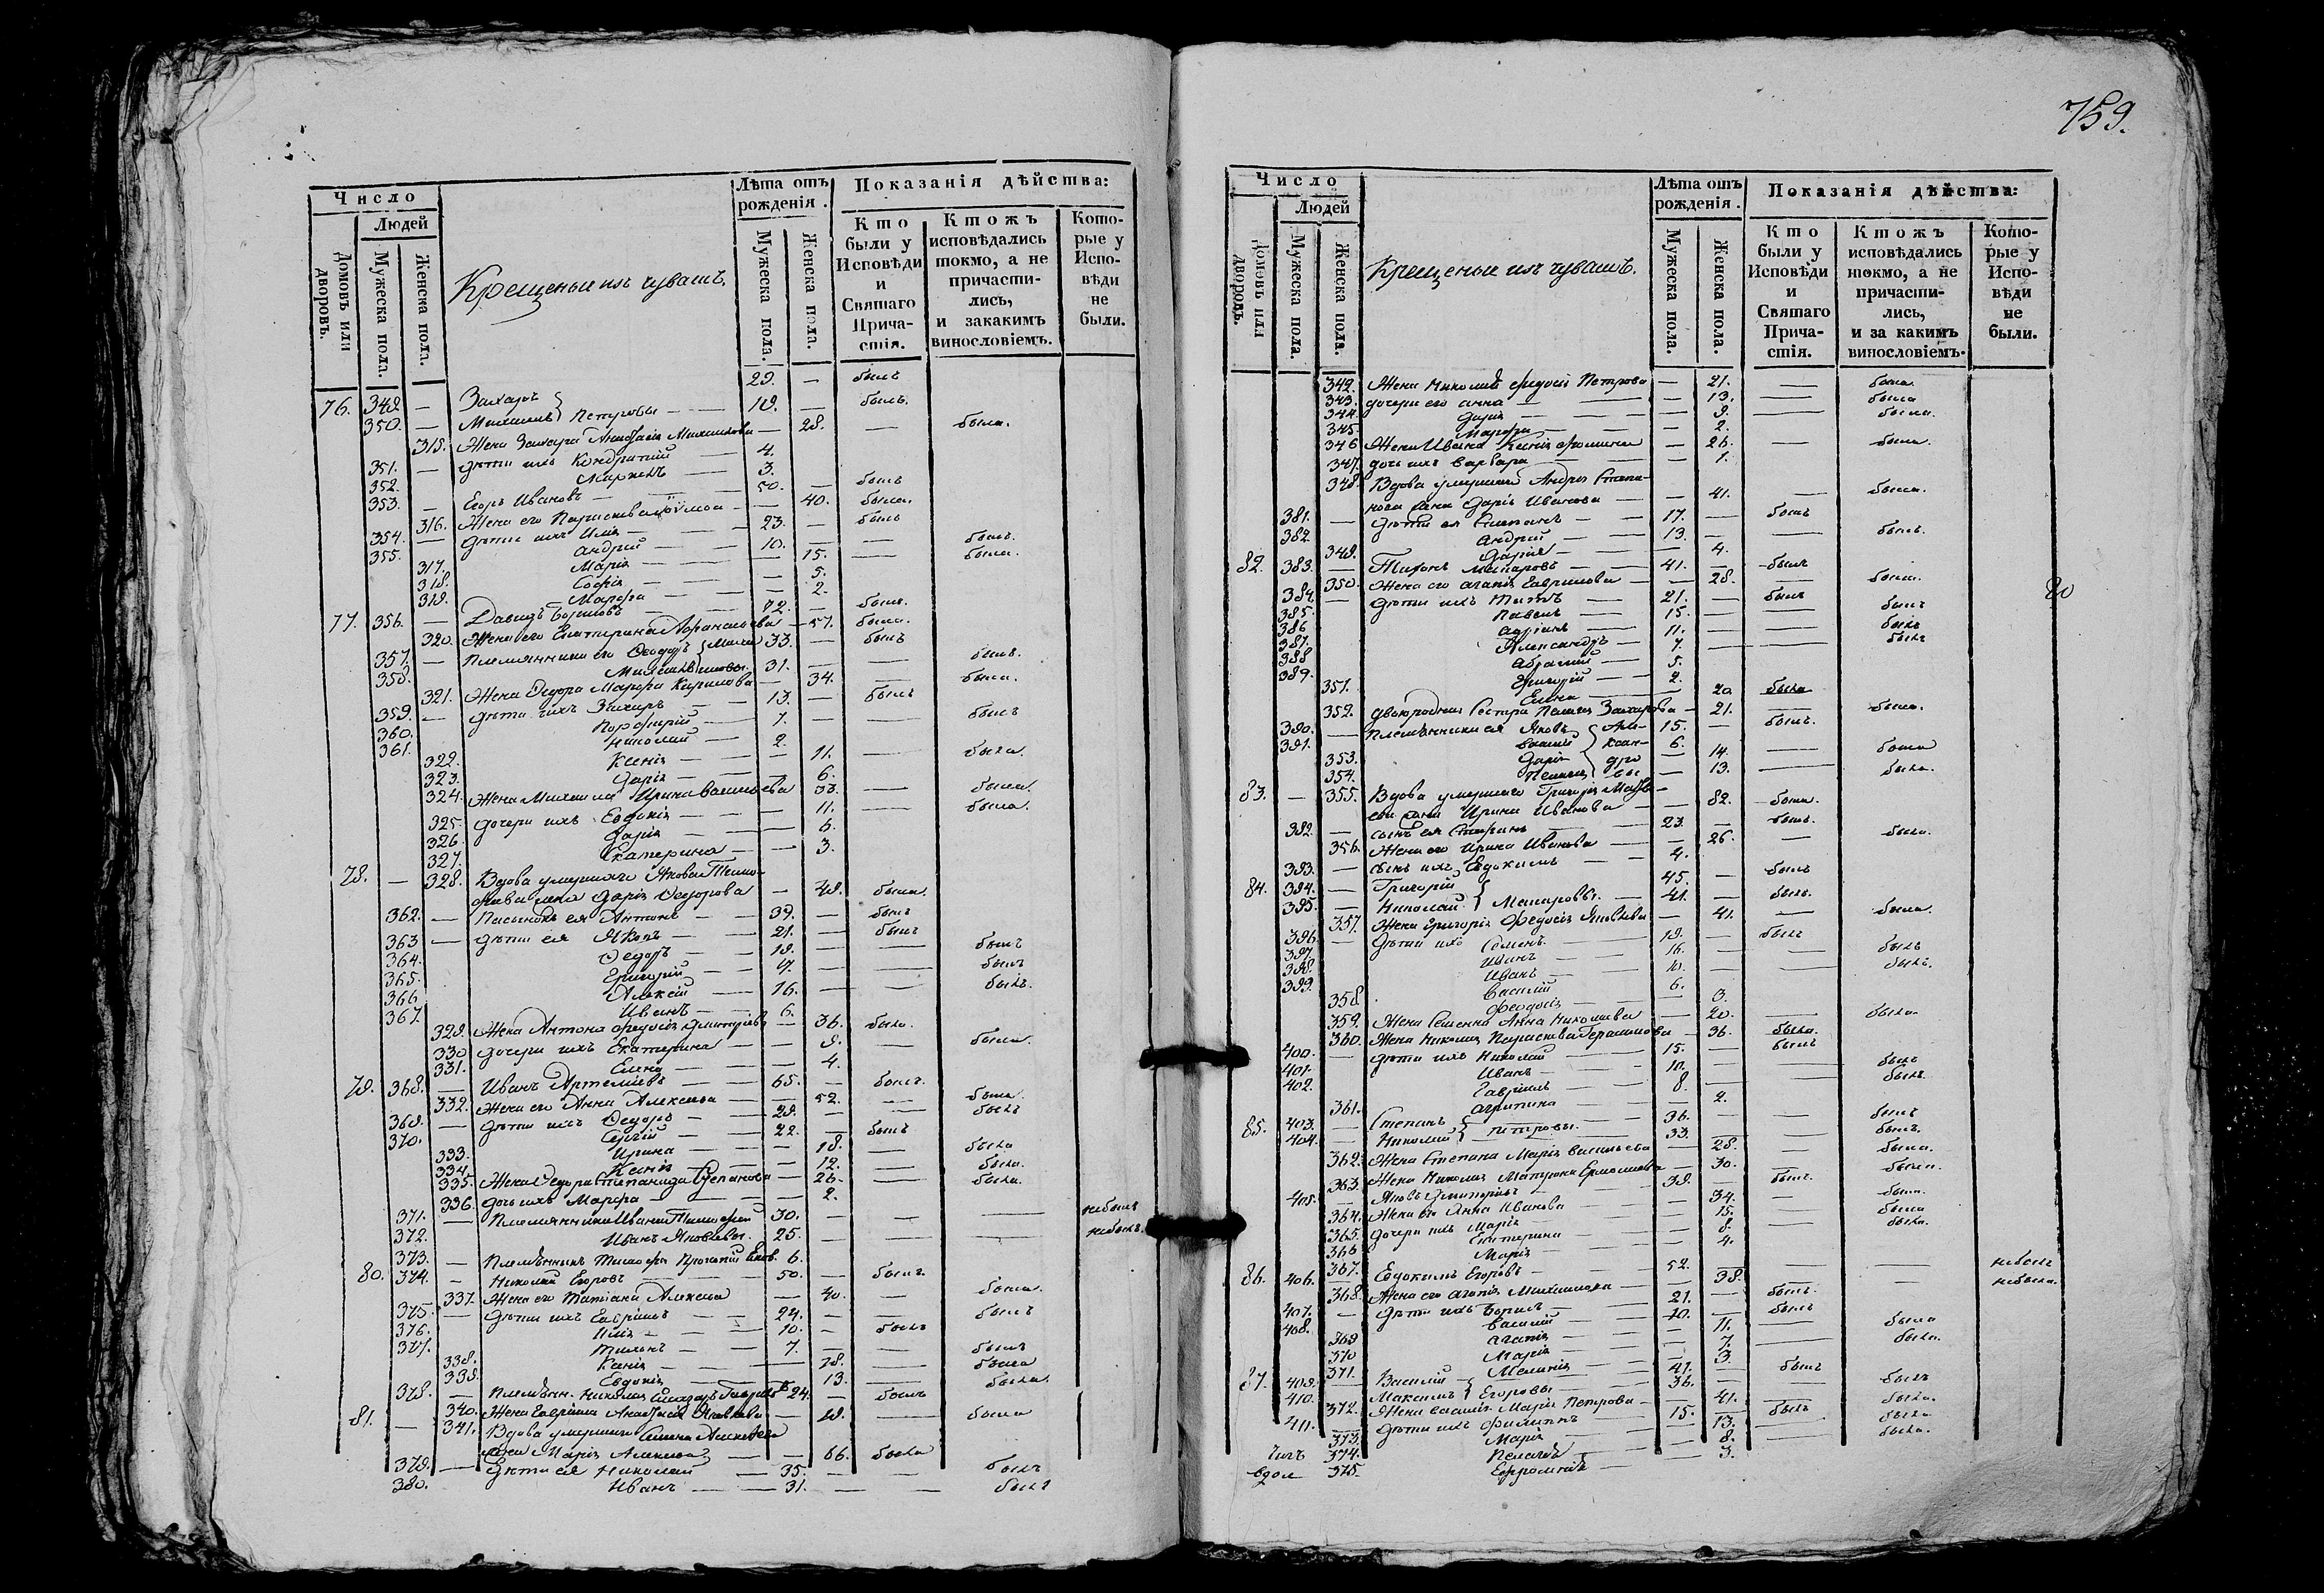 759.
Число
Людей
Домовъ или дворовъ.
Мужеска пола.
Женска пола.
Крещеные изъ чувашъ.
Лѣта отъ рожденія.
Мужеска пола.
Женска пола.
Показанія дѣйства:
Кто были у Исповѣди и Святаго Причастія.
Ктожъ исповѣдались токмо, а не причастились, и закакимъ винословіемъ.
Которые у Исповѣди не были.
76. 349. — Захаръ 29. — былъ
350. — Михаилъ Петровы — 19. — былъ.
315. Жена Захара Михайлова — 28. — была.
351. — дѣти ихъ Кондратий — 4.
352. 3.
353. — Егоръ Ивановъ — 50. — былъ
316. Жена его — 40. была.
354. — дѣти ихъ Илія — 23. — былъ
355. Андрей — 10. — — былъ.
317. Марія — 15. — была.
318. Софія — 5.
319. Марфа — 2.
77. 356. — Давидъ 72. — былъ.
320. Жена его Екатерина Афанасьева — 57. была.
357. — Племянники его Ѳеодоръ 33. — былъ
358. 31. — — былъ.
321. Жена Ѳедора Марфа Кирилова — 34. — была.
359. — дѣти ихъ Захаръ — 13. — былъ
360. Порфирій — 7. — — былъ
361. Николай — 2.
322. Ксенія — 11. — была.
323. Дарія — 6.
324. Жена Михаила Ирина Васильева 33. — была.
325. дочери ихъ Евдокія — 11. — была.
326. Дарія — 6.
327. Екатерина — 3.
78. — 328. Вдова умершаго Якова
жена Дарія Ѳедорова — 49. была.
362. — Пасынокъ ея Антонъ — 39. — былъ
363 — дѣти ея Яковъ — 21. — былъ
364. Ѳедоръ — 19. — — былъ
365. Григорій — 17. — — былъ
366 Алексій — 16. — — былъ.
367. Иванъ — 6.
329. Жена Антона Федосія Дмитріева — 36. была.
330 дочери ихъ Екатерина — 9. — была.
331. Елена — 4.
79. 368. — Иванъ Артемьевъ — 65. — былъ.
332. Жена его Анна Алексѣева — 52. — была.
369. — дѣти ихъ Ѳедоръ — 29. — — былъ
370. Сергій — 22. — былъ
333. Ирина — 18. — была
334. Ксенія — 12. — была.
335. Жена Ѳедора Степанида Степанова — 26. — была.
336. дочь ихъ Марфа — 2.
371. — Племянники Ивана Тимофей 30. — — — небылъ
372. Иванъ Яковлевы. 25. — — — небылъ.
373. — Племянникъ 6.
80. 374. — Николай Егоровъ 50. — былъ.
337. Жена его Татіана Алексѣева — 40. — была.
375. — дѣти ихъ Гавріилъ — 24. — — былъ
376. Илія — 10. — былъ
377. 7. — былъ
338. Ксенія — 18. — была
339. Евдокія — 13. — была.
378. — Племянн. Николая 24. — былъ
340. Жена Гавріила Анастасія Яковлева — 19. — была
81. — 341. Вдова умершаго Семена Алексѣева
жена Марія Алексѣева — 66. была
379. — дѣти ея Николай — 35. — — былъ
380. Иванъ — 31. — — былъ
Число
Людей
Домовъ или дворовъ.
Мужеска пола.
Женска пола.
Крещеные изъ чувашъ.
Лѣта отъ рожденія.
Мужеска пола.
Женска пола.
Показанія дѣйства:
Кто были у Исповѣди и Святаго Причастія.
Ктожъ исповѣдались токмо, а не причастились, и за какимъ винословіемъ.
Которые у Исповѣди не были.
342. Жена Николая Федосія Петрова — 21. — была.
343. дочери его Анна — 13. — была
344. Дарія — 9. — была.
345. Марфа — 2.
346 Жена Ивана Ксенія Фомина — 26. — была.
347. дочь ихъ Варвара — 1.
348. Вдова умершаго Андрея Степанова
жена Дарія Иванова — 41. — была.
381. — дѣти ея Степанъ — 17. — былъ
382. Андрей — 13. — — былъ.
349. Дарія — 4.
82. 383. — Тихонъ Макаровъ — 41. — былъ
350. Жена его Агапія Гаврилова — 28. — была.
384. — дѣти ихъ 21. — былъ
385. Павелъ — 15. — — былъ
386 Адріанъ — 11. — — былъ
387. Александръ — 7. — — былъ
388 Абрамій — 5.
389. Григорій — 2.
351. Елена — 20 была
352. двоюродная Сестра Пелагія Захарова — 21. — была.
390. — Племянники ея Яковъ 15. — былъ.
391. Василій 6.
353. Дарія 14. — была
354. Пелагія 13. — была.
83. — 355. Вдова умершаго Григорія
жена Ирина Иванова — 82. была.
392. — сынъ ея 23. — былъ.
356. Жена его Ирина Иванова — 26. — была.
393. — сынъ ихъ Евдокимъ — 4.
84. 394. — Григорій 45. — былъ
395. — Николай Макаровы. — 41. — былъ.
357. Жена Григорія Федосія Яковлева — 41. — была.
396. — дѣти ихъ Семенъ. — 19. — былъ
397. Иванъ — 16. — — былъ
398. Иванъ — 10. — — былъ.
399. Василій — 6.
358. Феодосія — 3.
359. Жена Семена Анна Николаева — 20. — была.
360. Жена Николая Параскева Герасимова — 36. была.
400. — дѣти ихъ Николай — 15. — былъ
401. Иванъ — 10. — — былъ
402. Гавріилъ — 8. — — былъ.
361. Агрипина — 2.
85. 403. — Степанъ 36. — — былъ
404. — Николай Петровы. 33. — — былъ.
362. Жена Степана Марія Васильева — 28. — была.
363. Жена Николая Матрона Ермолаева — 30. — была.
405. — Яковъ Дмитріевъ — 39. — былъ.
364. Жена его Анна Иванова — 34. — была.
365. дочери ихъ Марія — 15. — была
366 Екатерина — 8. — была.
367. Марія — 4.
86. 406. — Евдокимъ Егоровъ — 52. — — — небылъ
368. Жена его Агапія Михайлова — 38. — — небыла.
407. — дѣти ихъ Борисъ — 21. — былъ.
408. Василій — 20. — былъ
369 Агапія — 11. — была
370 Марія — 7. — была.
371. Меланія — 3.
87. 409. — Василій 41. — былъ
410. — Максимъ Егоровы — 36. — — былъ
372. Жена Василія Марія Петрова — 41. — была.
411. — дѣти ихъ Филиппъ — 15. — былъ
373. Марія — 13. — была
374. Пелагія — 8. — была.
375. 3.
20